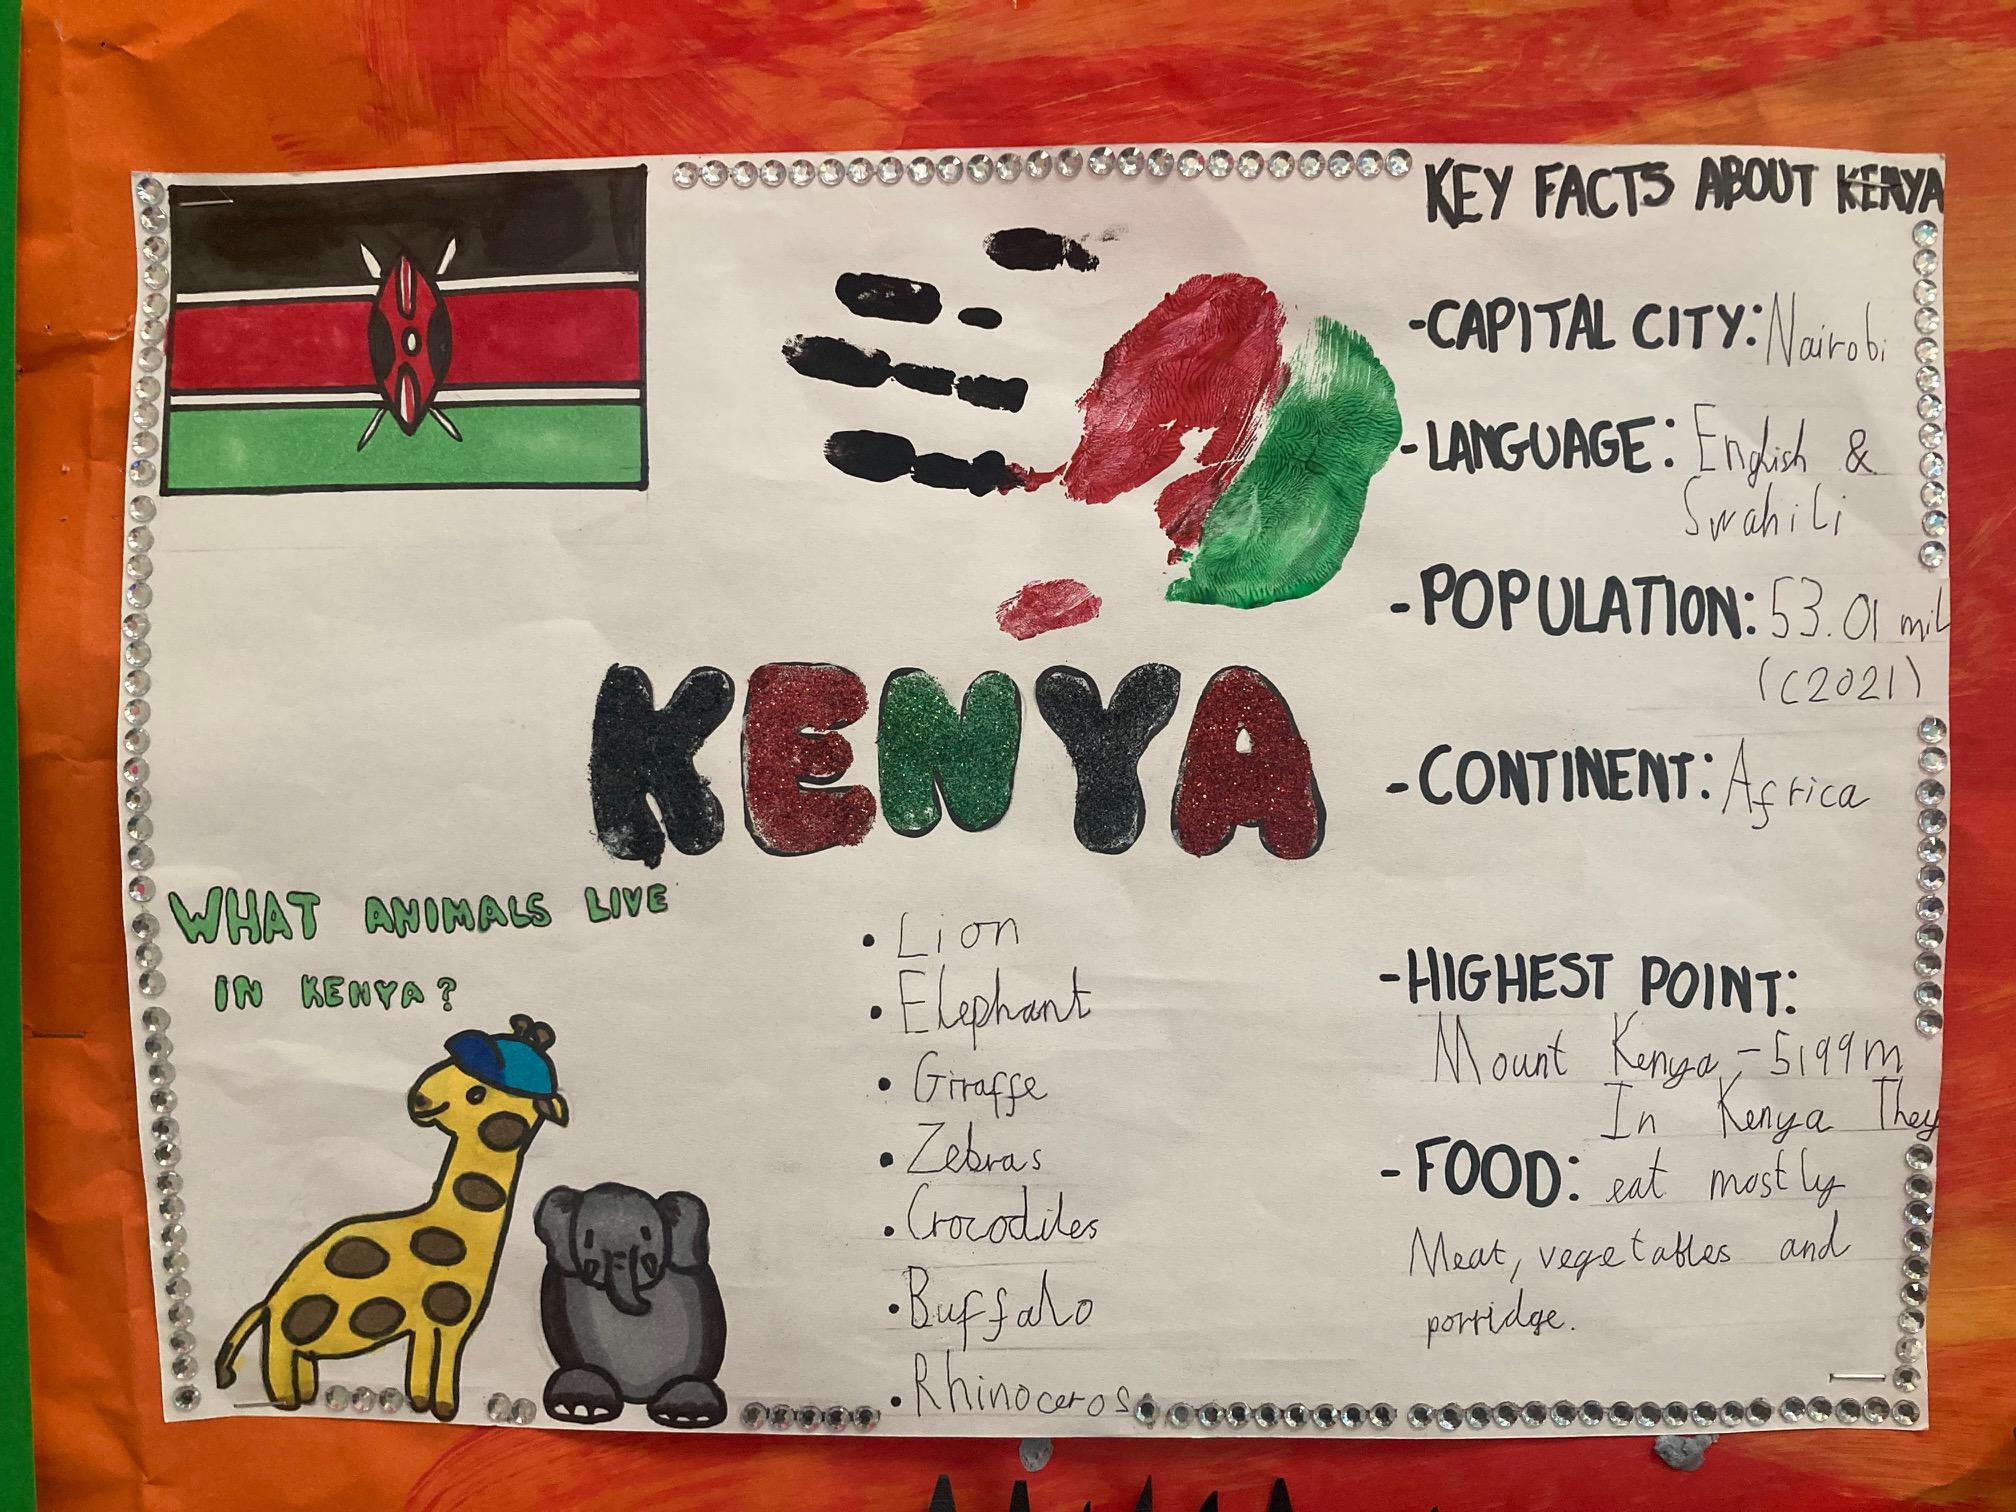 KEY FACTS ABOUT KENYA
-CAPITAL CITY: Nairobi
-LANGUAGE: English &
Swahili
-POPULATION: 53.01 mil
(C2021)
KENYA
-CONTINENT: Africa
WHAT ANIMALS LIVE
IN KENYA?
• Lion
• Elephant
• Giraffe
• Zebras
• Crocodiles
• Buffalo
• Rhinoceros
-HIGHEST POINT:
Mount Kenya - 5199m
In Kenya They
-FOOD: eat mostly
Meat, vegetables and
porridge.